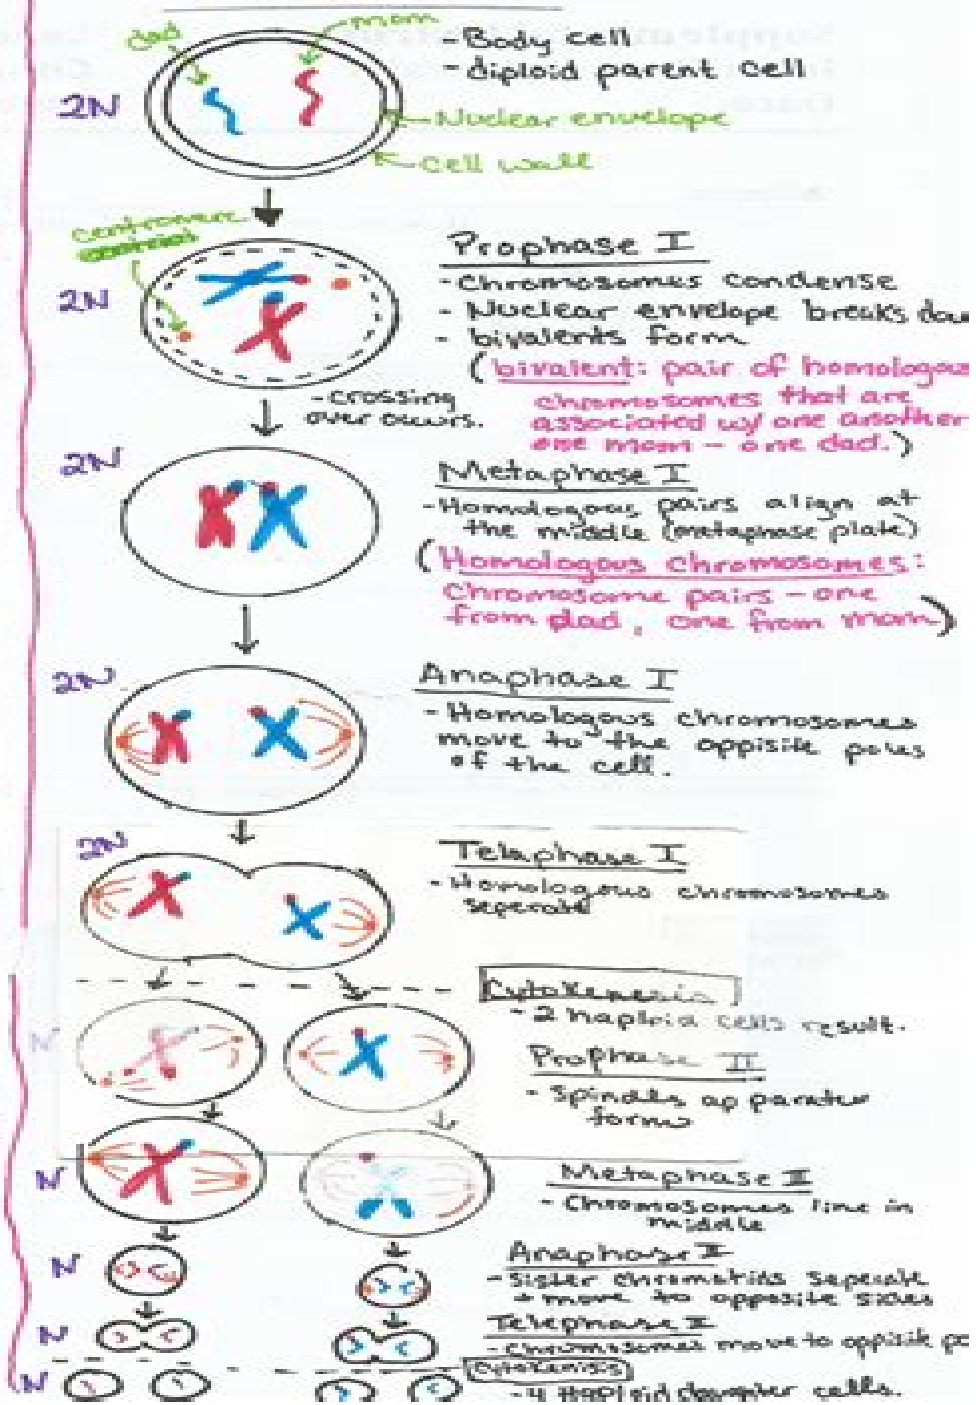 dad
mom
- Body cell
- diploid parent cell
2N
Nuclear envelope
Cell wall
centromere
2N
Prophase I
- Chromosomes condense
- Nuclear envelope breaks dow
- bivalents form
(bivalent: pair of homologous
chromosomes that are
associated w/ one another
one mom - one dad.)
- crossing
over occurs.
2N
Metaphase I
- Homologous pairs align at
the middle (metaphase plate)
(Homologous chromosomes:
Chromosome pairs - one
from dad, one from mom)
2N
Anaphase I
- Homologous chromosomes
move to the opposite poles
of the cell.
2N
Telaphase I
- Homologous chromosomes
seperate
Cytokenesis
- 2 haploid cells result.
N
Prophase II
- Spindles
forms
N
Metaphase II
- Chromosomes line in
middle
N
Anaphase II
- Sister chromatids seperate
+ move to opposite sides
N
Telephase II
- chromosomes move to oppisite po
Cytokenisis
N
- 4 Haploid daughter cells.